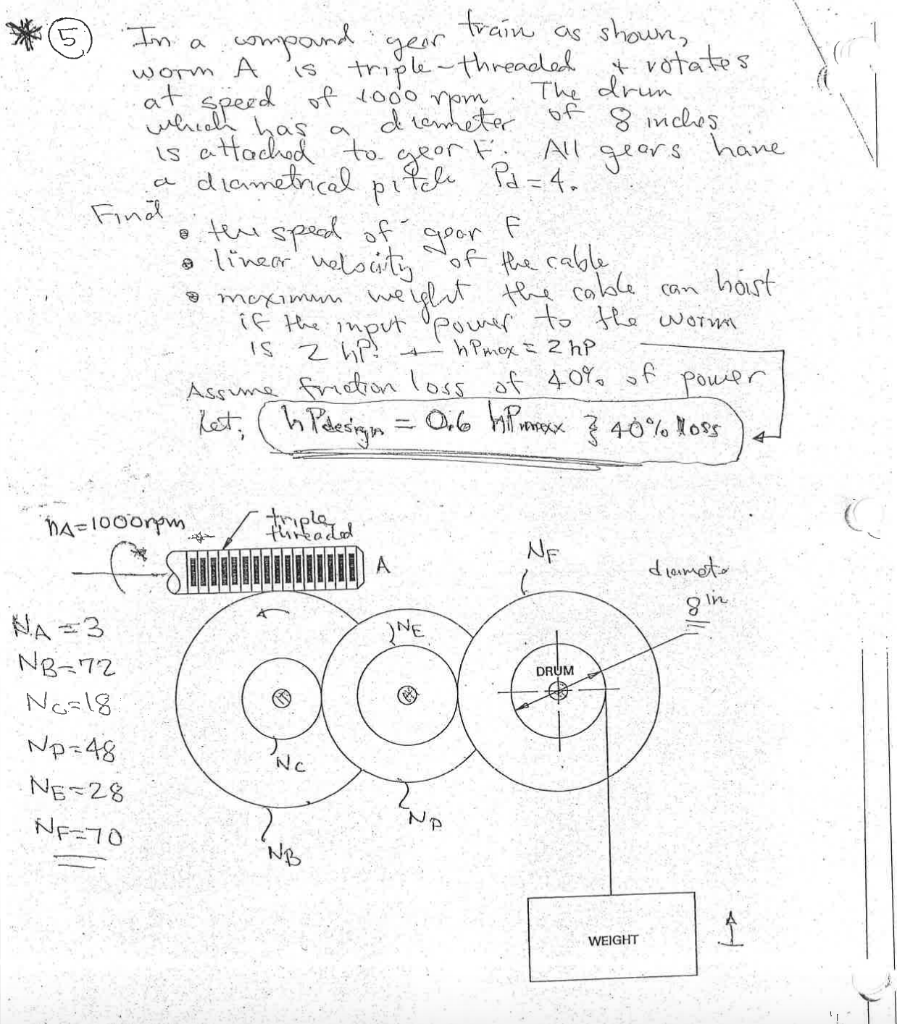 * 5 In a compound gear train as shown,
worm A is triple-threaded & rotates
at speed of 1000 rpm. The drum
which has a diameter of 8 inches
is attached to gear F. All gears have
a diametrical pitch Pd = 4.
Find
• the speed of gear F
• linear velocity of the cable
• maximum weight the cable can hoist
if the input power to the worm
is 2 hP? ← hPmax = 2 hP
Assume friction loss of 40% of power
Let; hPdesign = 0.6 hPmax } 40% loss
nA=1000rpm
triple
threaded
A
NF
diameter
8 in
NA = 3
NB=72
NC=18
ND=48
NE=28
NF=70
NE
DRUM
NC
ND
NB
WEIGHT